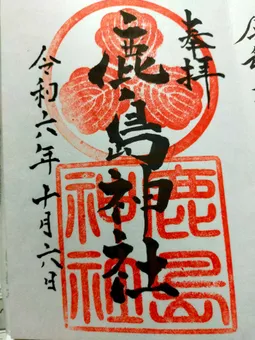 奉拝
鹿島神社
令和六年十月六日
鹿島
神社